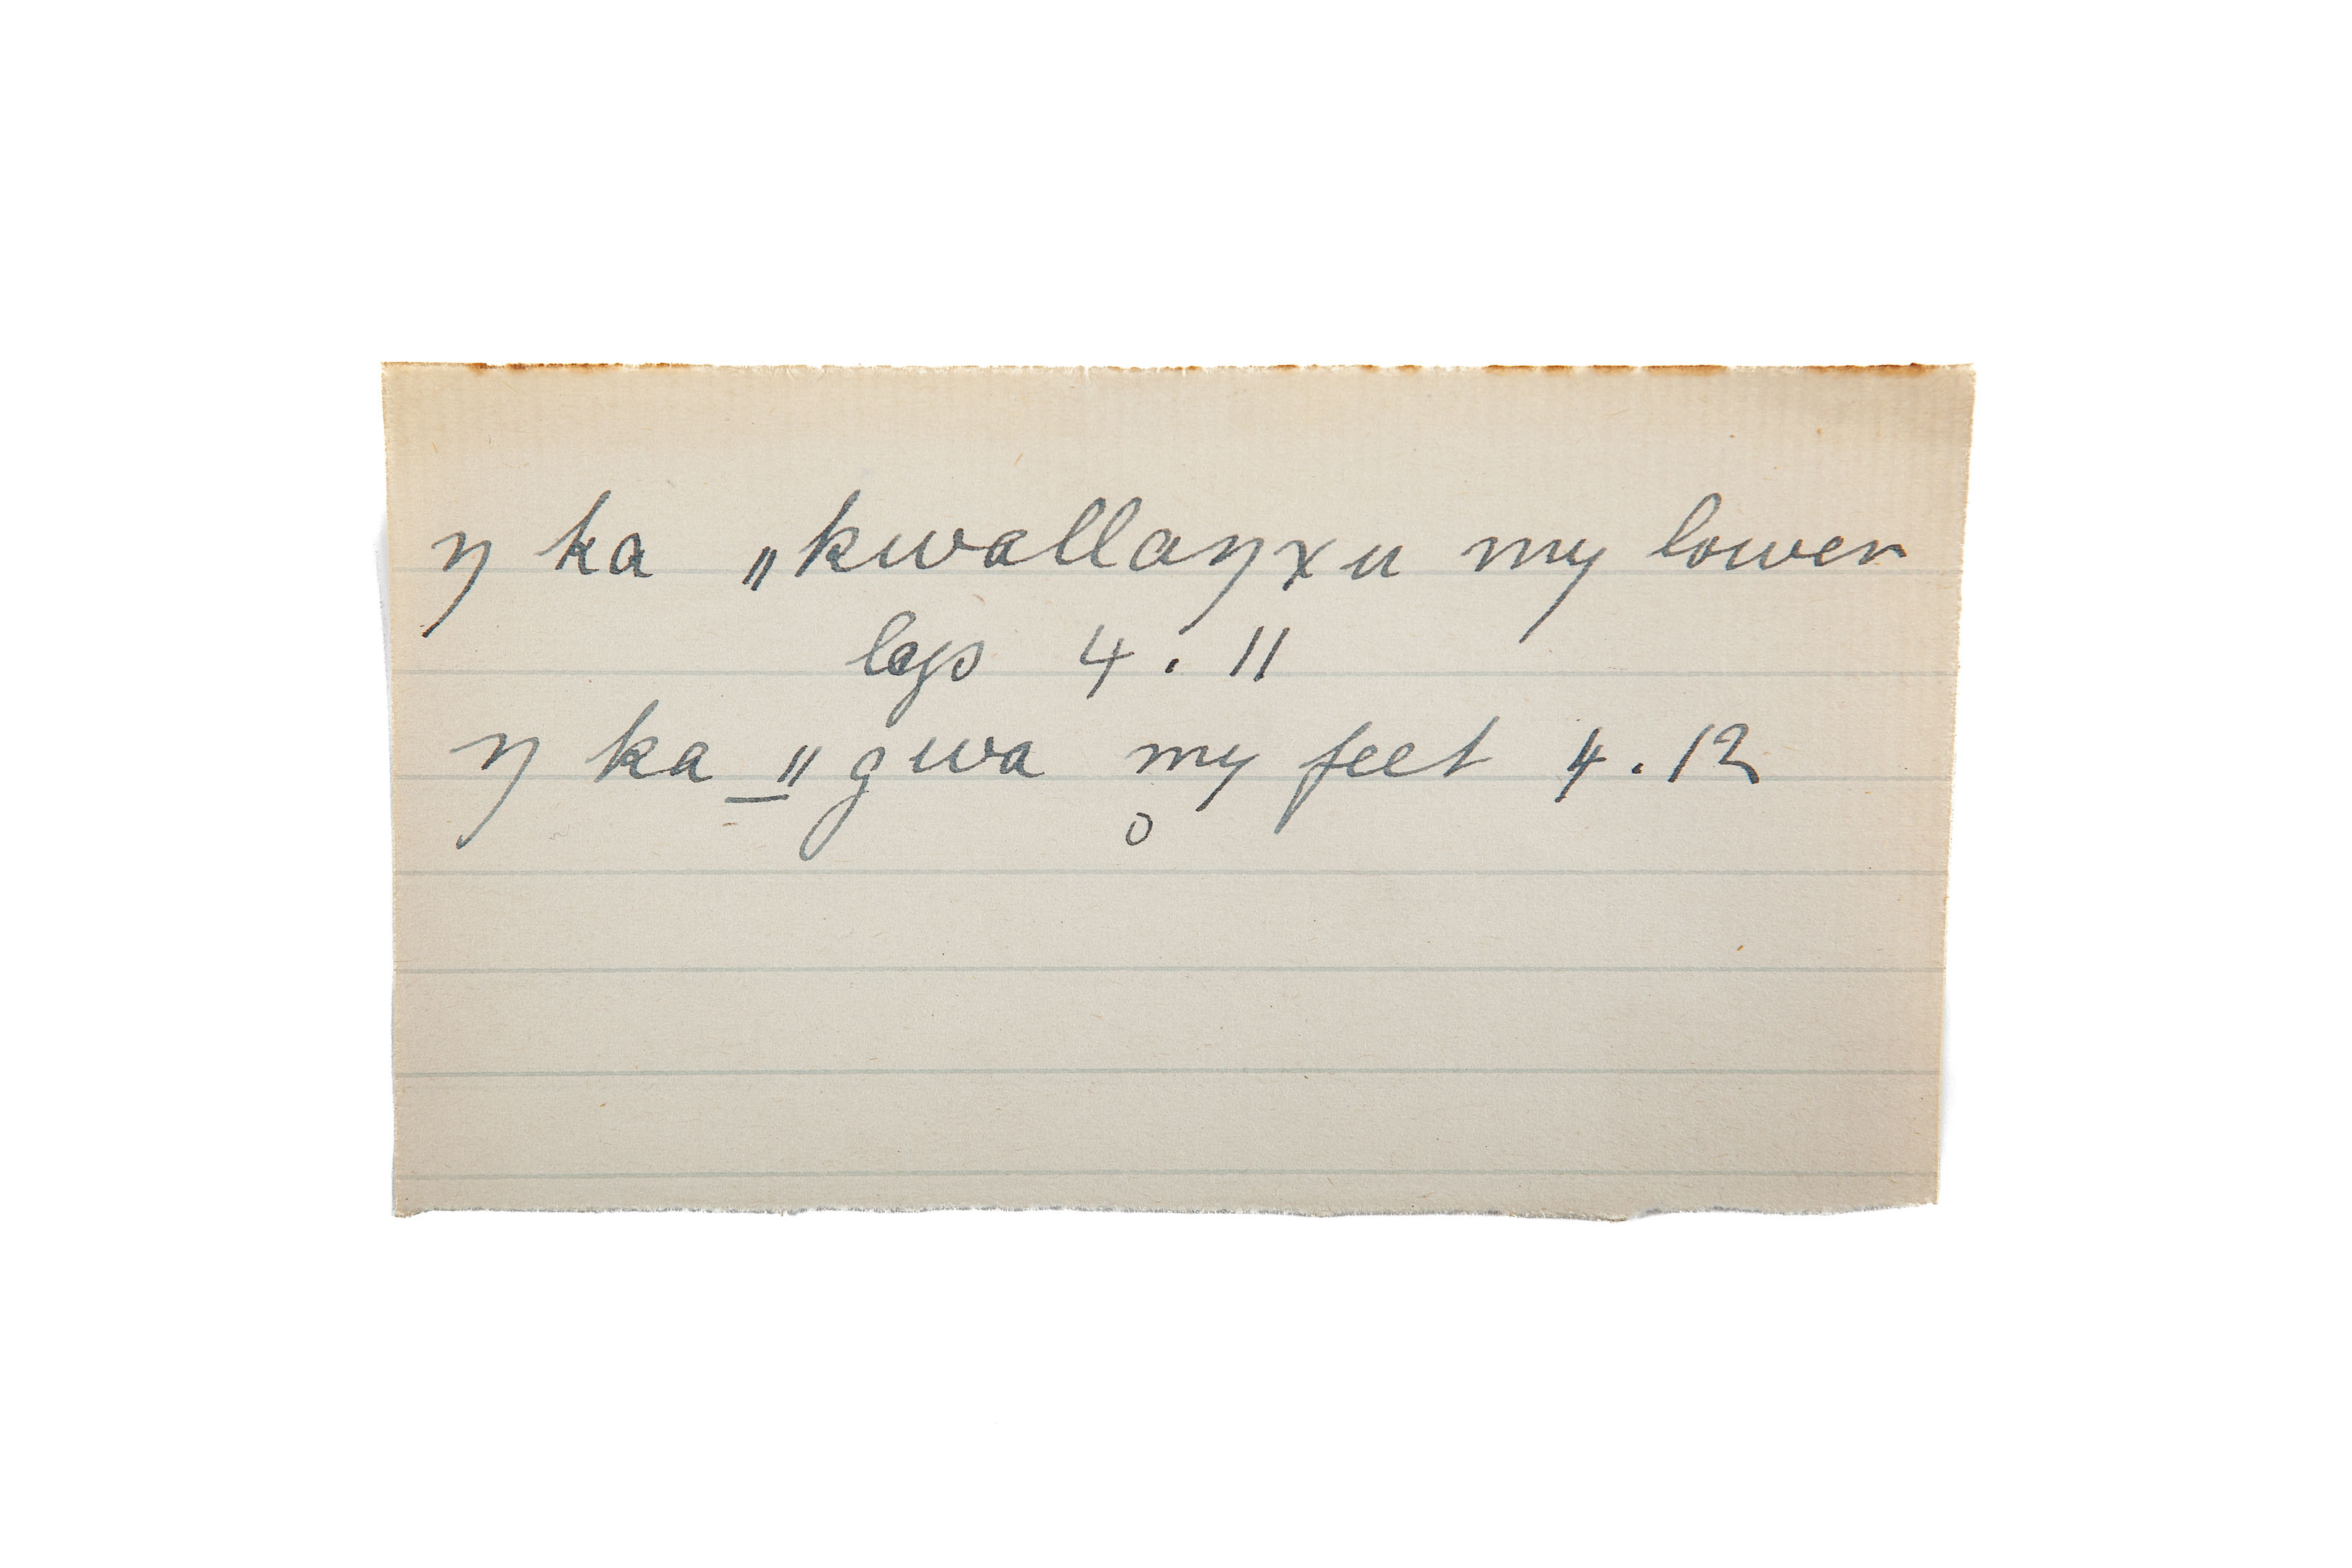 ŋ ka ǁkwallaŋxu my lower
legs 4.11
ŋ ka _ǁgwa my feet 4.12